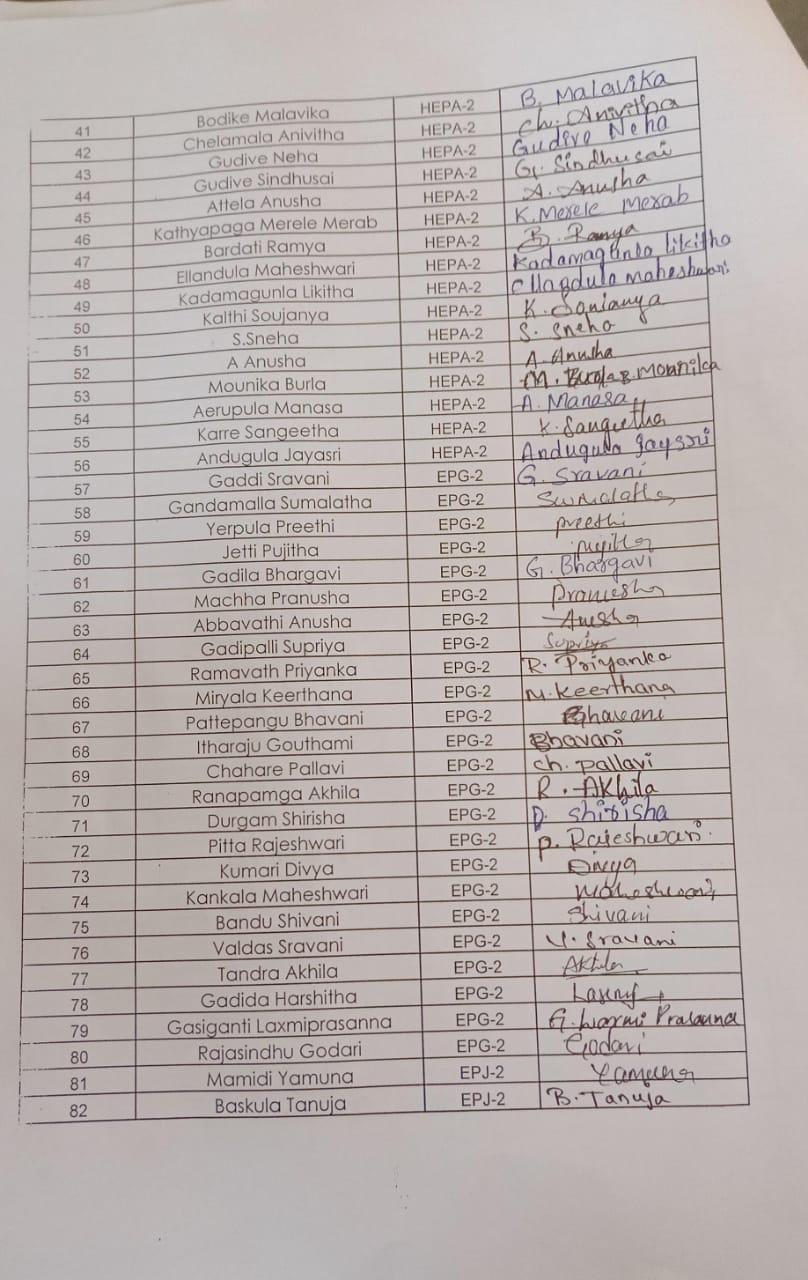 41 Bodike Malavika HEPA-2 B. Malavika
42 Chelamala Anivitha HEPA-2 Ch. Anivitha
43 Gudive Neha HEPA-2 Gudive Neha
44 Gudive Sindhusai HEPA-2 G. Sindhusai
45 Attela Anusha HEPA-2 A. Anusha
46 Kathyapaga Merele Merab HEPA-2 K. Merele Merab
47 Bardati Ramya HEPA-2 B. Ramya
48 Ellandula Maheshwari HEPA-2 Kadamagunla likitha
49 Kadamagunla Likitha HEPA-2 maheshwari
50 Kalthi Soujanya HEPA-2 K. Sonianya
51 S.Sneha HEPA-2 S. Sneha
52 A Anusha HEPA-2 A. Anusha
53 Mounika Burla HEPA-2 M.
54 Aerupula Manasa HEPA-2 A. Manasa
55 Karre Sangeetha HEPA-2 K. Sangeetha
56 Andugula Jayasri HEPA-2 Andugula
57 Gaddi Sravani EPG-2 G. Sravani
58 Gandamalla Sumalatha EPG-2
59 Yerpula Preethi EPG-2 preethi
60 Jetti Pujitha EPG-2
61 Gadila Bhargavi EPG-2 G. Bhargavi
62 Machha Pranusha EPG-2
63 Abbavathi Anusha EPG-2 Anusha
64 Gadipalli Supriya EPG-2 Supriya
65 Ramavath Priyanka EPG-2 R. Priyanka
66 Miryala Keerthana EPG-2 M. Keerthana
67 Pattepangu Bhavani EPG-2 Bhavani
68 Itharaju Gouthami EPG-2 Bhavani
69 Chahare Pallavi EPG-2 ch. pallavi
70 Ranapamga Akhila EPG-2 R. Akhila
71 Durgam Shirisha EPG-2 D. shirisha
72 Pitta Rajeshwari EPG-2 p. Rajeshwari
73 Kumari Divya EPG-2 Divya
74 Kankala Maheshwari EPG-2 Maheshwari
75 Bandu Shivani EPG-2 Shivani
76 Valdas Sravani EPG-2 V. Sravani
77 Tandra Akhila EPG-2 Akhila
78 Gadida Harshitha EPG-2
79 Gasiganti Laxmiprasanna EPG-2 G. Laxmi Prasanna
80 Rajasindhu Godari EPG-2 Godari
81 Mamidi Yamuna EPJ-2 Yamuna
82 Baskula Tanuja EPJ-2 B. Tanuja